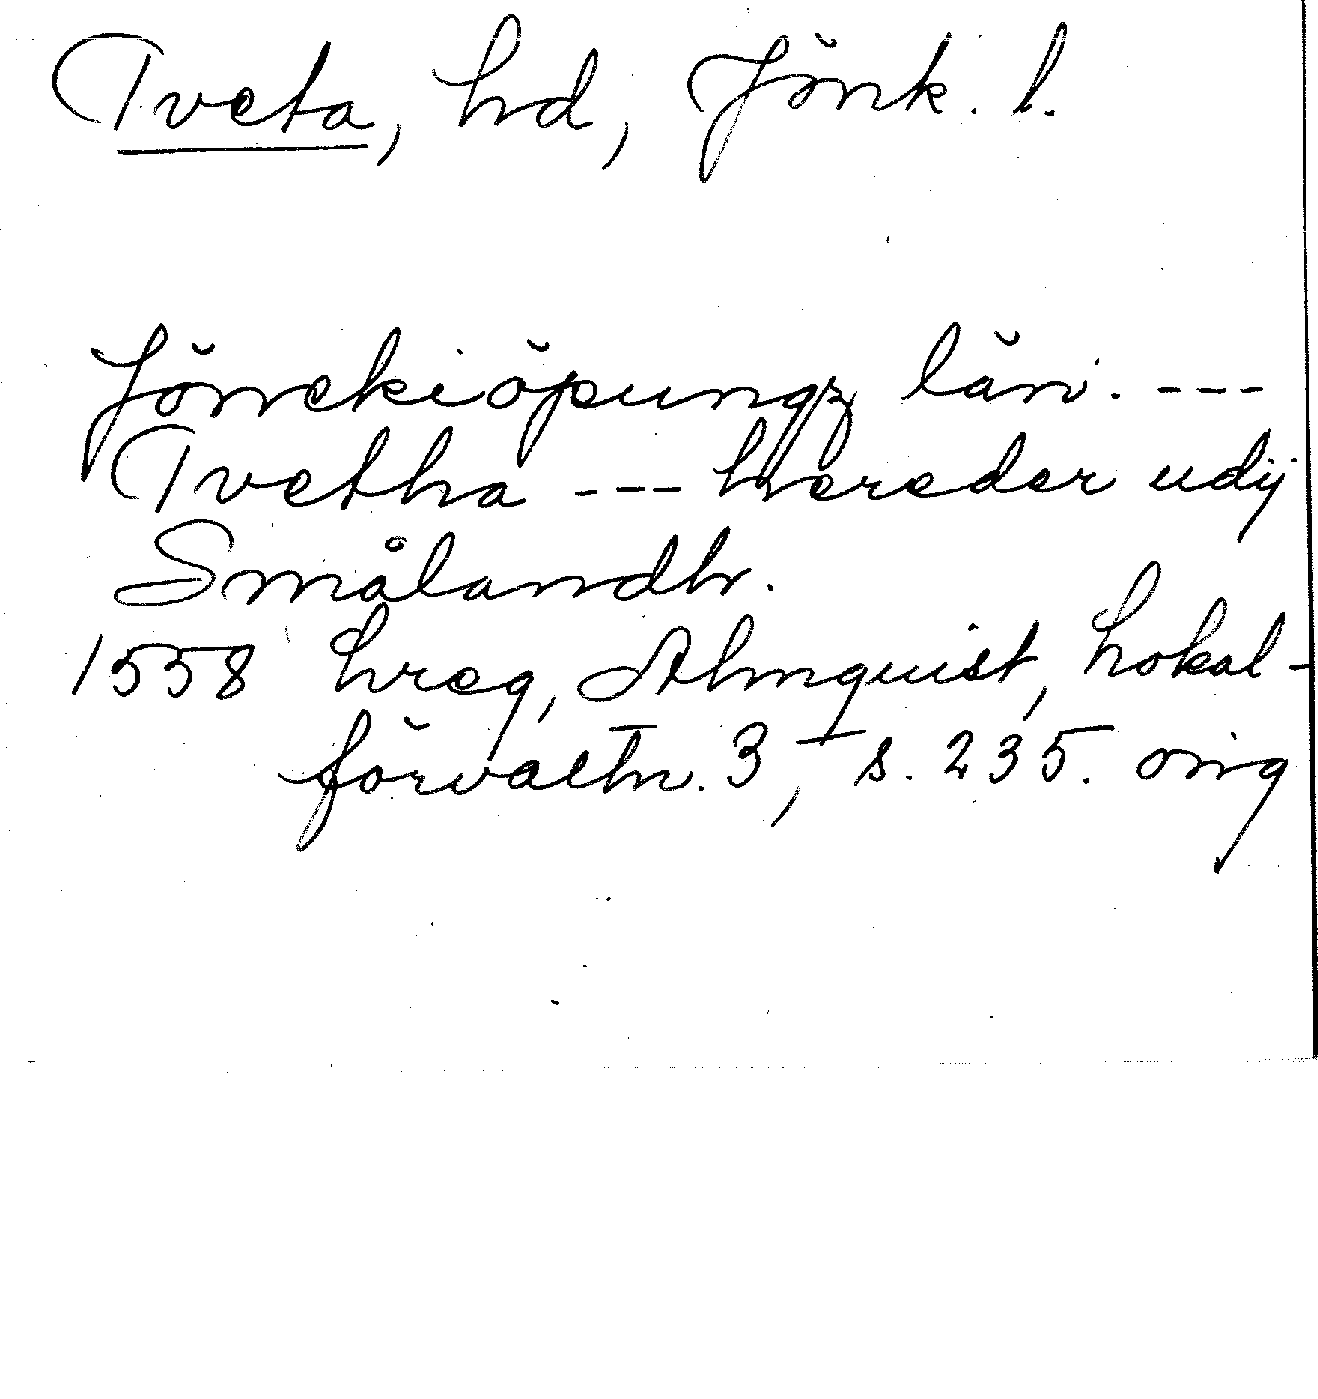 Tveta, hd, Jönk. l.
Jönekiöpungz län. ---
Tvetha --- hereder udij
Smålandh.
1558 hreg, Almquist, Lokal-
förvaltn. 3, s. 235. orig